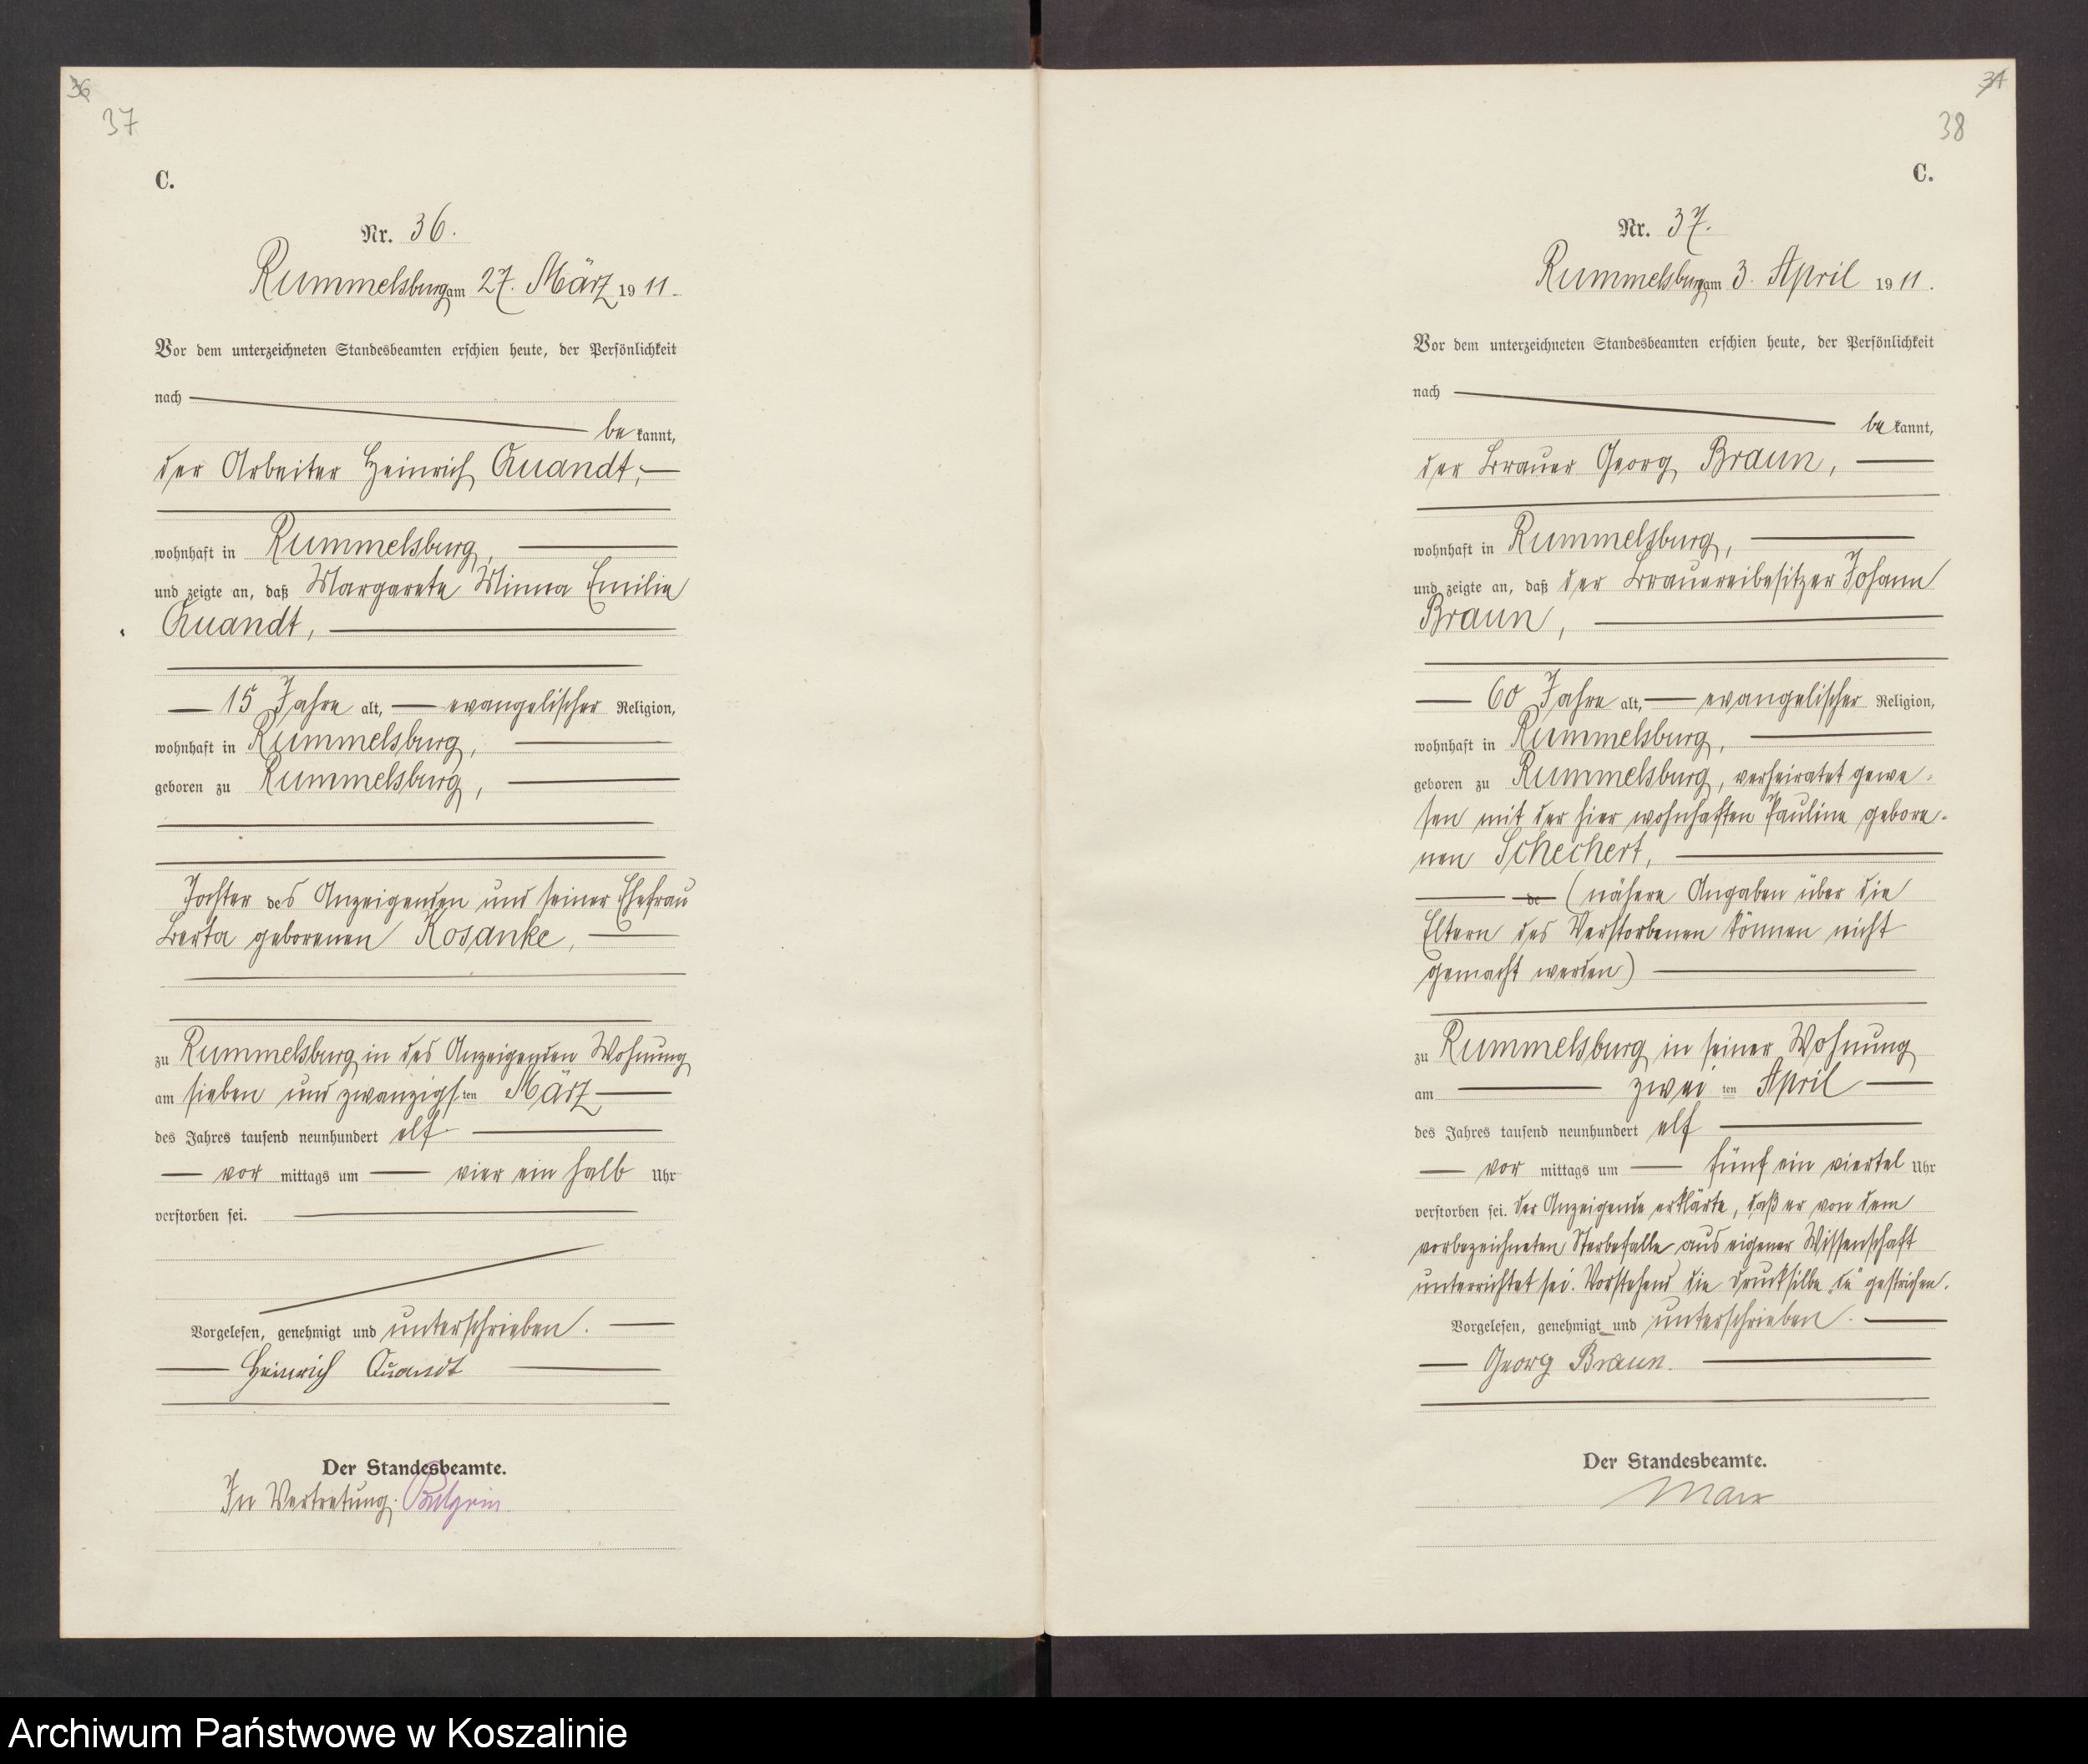 36
37
C.
Nr. 36.
Rummelsburg am 27. März 1911.
Vor dem unterzeichneten Standesbeamten erschien heute, der Persönlichkeit
nach
bekannt,
der Arbeiter Heinrich Quandt,
wohnhaft in Rummelsburg,
und zeigte an, daß Margarete Minna Emilie
Quandt,
15 Jahre alt, evangelischer Religion,
wohnhaft in Rummelsburg,
geboren zu Rummelsburg,
Tochter des Anzeigenden und seiner Ehefrau
Berta geborenen Kosanke,
zu Rummelsburg in des Anzeigenden Wohnung
am sieben und zwanzigsten März
des Jahres tausend neunhundert elf
vor mittags um vier ein halb Uhr
verstorben sei.
Vorgelesen, genehmigt und unterschrieben.
Heinrich Quandt
Der Standesbeamte.
In Vertretung:
38
C.
Nr. 37.
Rummelsburg am 3. April 1911.
Vor dem unterzeichneten Standesbeamten erschien heute, der Persönlichkeit
nach
bekannt,
der Brauer Georg Braun,
wohnhaft in Rummelsburg,
und zeigte an, daß der Brauereibesitzer Johann
Braun,
60 Jahre alt, evangelischer Religion,
wohnhaft in Rummelsburg,
geboren zu Rummelsburg, verheiratet gewe-
sen mit der hier wohnhaften Pauline gebore-
nen Schechert,
de (nähere Angaben über die
Eltern des Verstorbenen können nicht
gemacht werden)
zu Rummelsburg in seiner Wohnung
am zweiten April
des Jahres tausend neunhundert elf
vor mittags um fünf ein viertel Uhr
verstorben sei. Der Anzeigende erklärte, daß er von dem
vorbezeichneten Sterbefalle aus eigener Wissenschaft
unterrichtet sei. Vorstehend die Drucksilbe „de" gestrichen.
Vorgelesen, genehmigt und unterschrieben.
Georg Braun.
Der Standesbeamte.
Archiwum Państwowe w Koszalinie